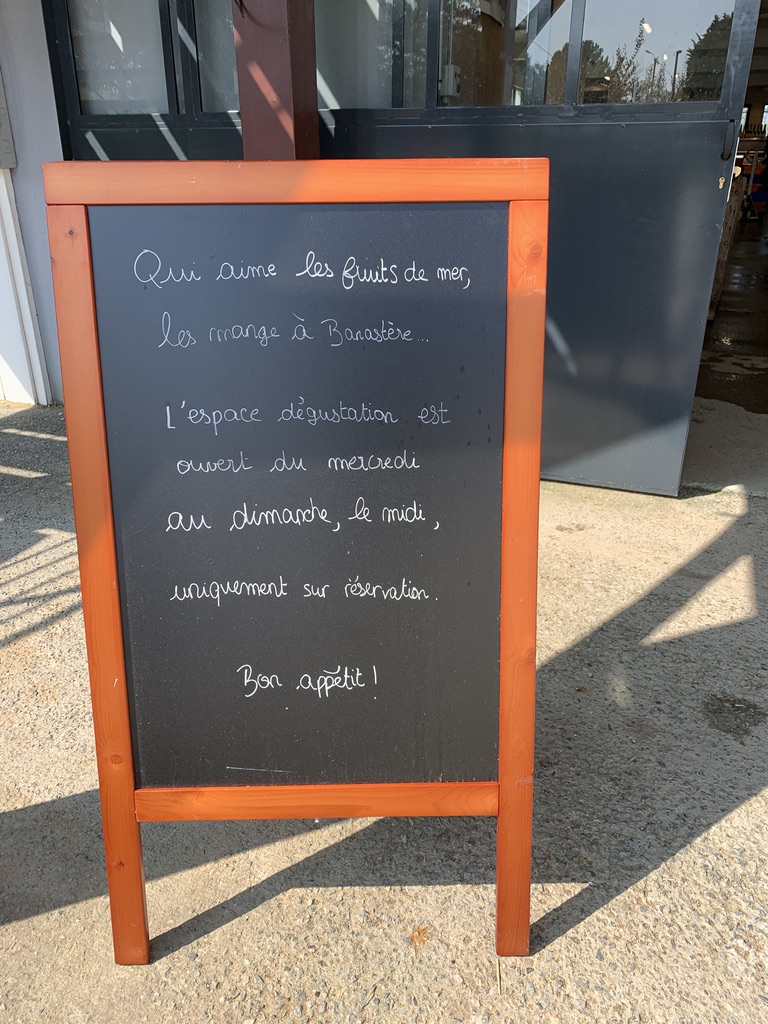 Qui aime les fruits de mer,
les mange à Banastère...
L'espace dégustation est
ouvert du mercredi
au dimanche, le midi,
uniquement sur réservation.
Bon appétit !